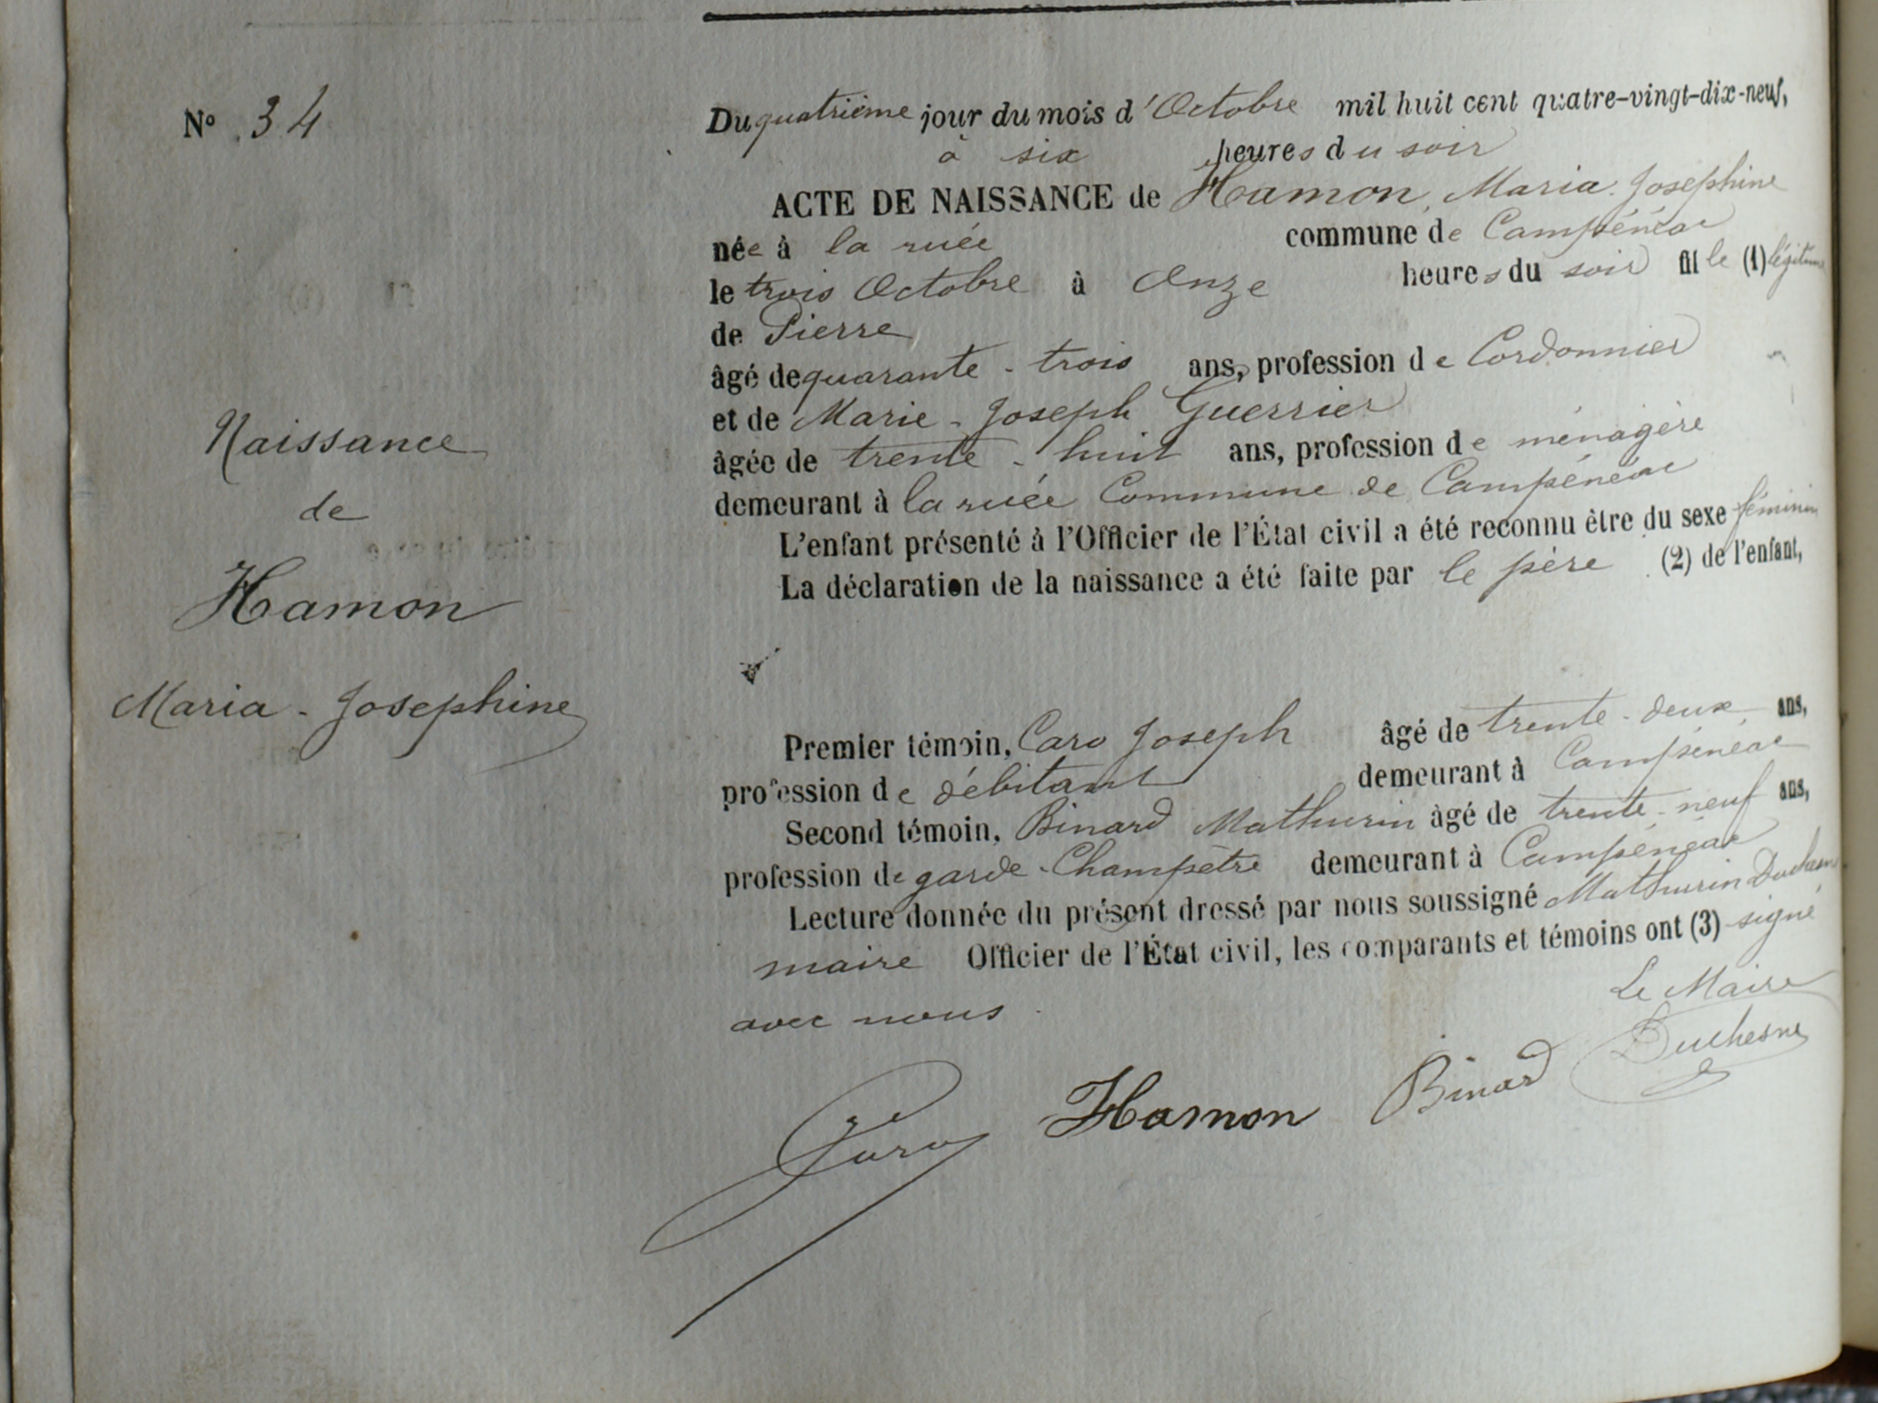 N° 34
Naissance
de
Hamon
Maria - Josephine
Du quatrième jour du mois d'Octobre mil huit cent quatre-vingt-dix-neuf,
à six heures du soir
ACTE DE NAISSANCE de Hamon, Maria Josephine
née à la ruée commune de Campénéac
le trois Octobre à Onze heures du soir fille (1) légitime
de Pierre
âgé de quarante - trois ans, profession de Cordonnier
et de Marie - Joseph Guerrier
âgée de trente - huit ans, profession de ménagère
demeurant à la ruée Commune de Campénéac
L'enfant présenté à l'Officier de l'État civil a été reconnu être du sexe féminin
La déclaration de la naissance a été faite par le père (2) de l'enfant,
Premier témoin, Caro Joseph âgé de trente - deux ans,
profession de débitant demeurant à Campénéac
Second témoin, Binard Mathurin âgé de trente - neuf ans,
profession de garde - Champêtre demeurant à Campénéac
Lecture donnée du présent dressé par nous soussigné Mathurin Duchesne
maire Officier de l'État civil, les comparants et témoins ont (3) signé
avec nous
Le Maire
Duchesne
Caro Hamon Binard